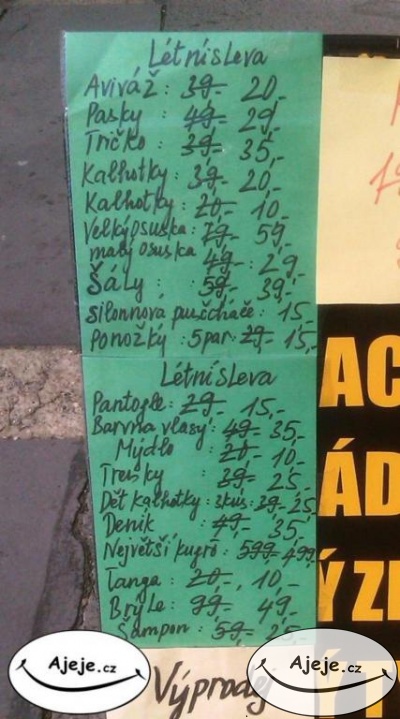 Létnísleva
Aviváž: 39- 20,-
Pasky : 49- 29,-
Tričko : 39- 35,-
Kalhotky : 39- 20,-
Kalhotky: 20,- 10,-
Velkýosuska: 79- 59,-
malý osuska 49- : 29,-
Šály : 59- 39,-
silonnová punčcháče: 15,-
Ponožký : 5par: 29- 15,-
Létnísleva
Pantogle: 29- 15,-
Barvna vlasy: 49- 35,-
Mýdlo : 20- 10,-
Tresky : 39- 25,-
Dět kalhotky: 3kus: 39- 25,-
Deník : 49,- 35,-
Největší kugró : 599- 499,-
Tanga : 20-, 10,-
Brýle: 99,- 49,-
Šampon : 59,- 25,-
Výprodej
AC
ÁD
ÝZ
Ajeje.cz
Ajeje.cz